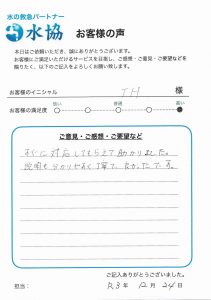 水の救急パートナー
水協
お客様の声
本日はご依頼いただき、誠にありがとうございます。
お客様にご満足いただけるサービスを目指し、ご感想・ご意見・ご要望などを
賜りたく、以下のご記入をよろしくお願い致します。
お客様のイニシャル TH 様
低い 普通 高い
お客様の満足度
ご意見・ご感想・ご要望など
すぐに対応してもらえて助かりました。
説明も分かりやすく丁寧で良かったです。
ご記入ありがとうございました。
担当： R3年 12月 24日